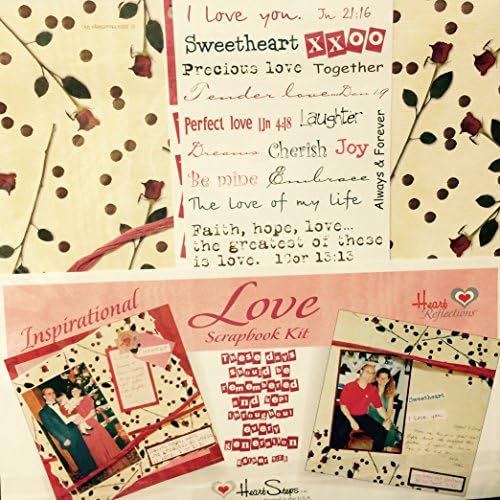 I love you. Jn 21:16
Sweetheart XXOO
Precious love Together
Tender love Dan 19
Perfect love IJn 448 Laughter
Dreams Cherish Joy
Be mine Embrace
The Love of my Life
Always & Forever
Faith, hope, love...
the greatest of these
is love. 1Cor 13:13
Inspirational
Love
Scrapbook Kit
Heart
Reflections
These days
should be
remembered
and kept
throughout
every
generation
Sweetheart
I love you.
HeartSteps